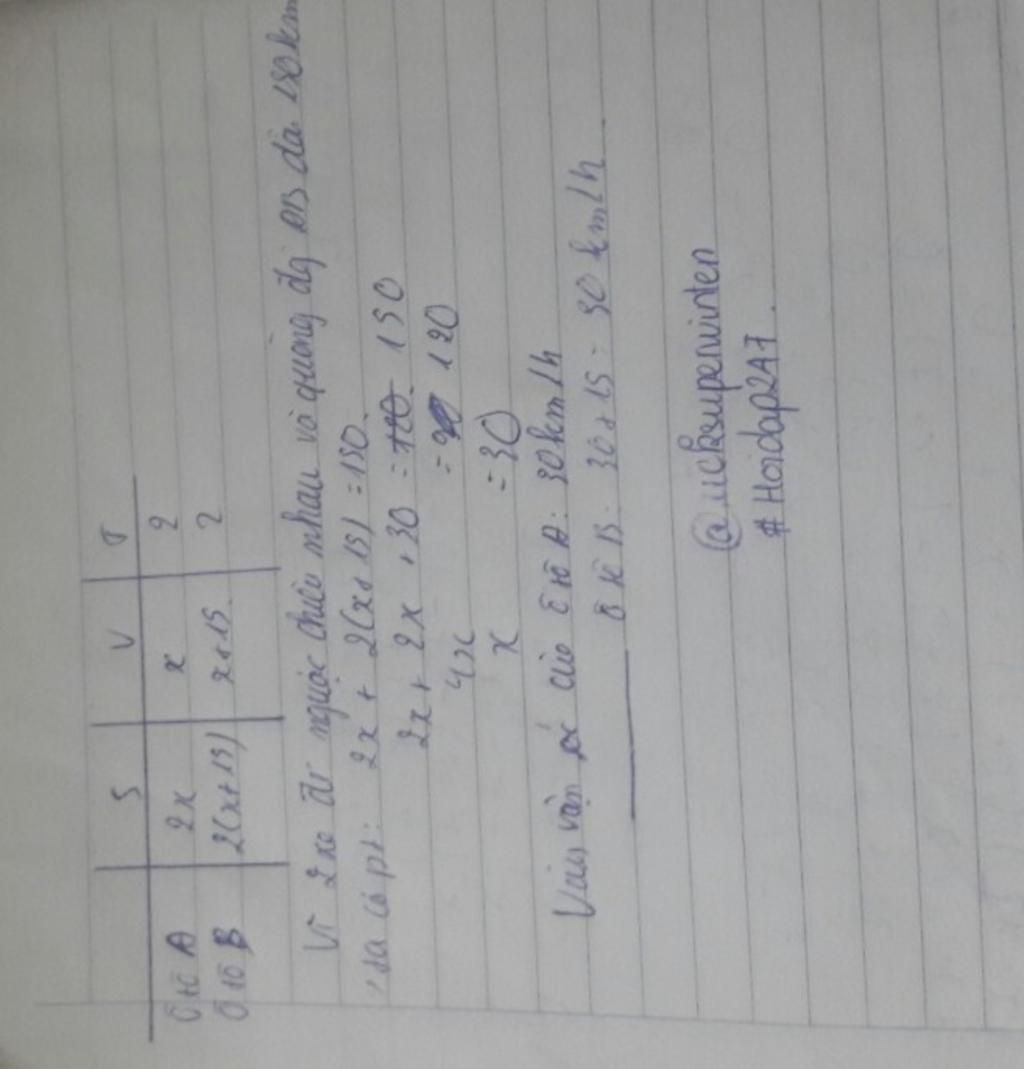 S V T
Ô tô A 2x x 2
Ô tô B 2(x+15) x+15 2
Vì 2 xe đi ngược chiều nhau và quãng đg AB dài 150km
, ta có pt: 2x + 2(x+15) = 150
2x + 2x + 30 = 150
4x = 120
x = 30
Vậy vận tốc của ô tô A: 30km/h
ô tô B: 30+15= 30 km/h
@nicksuperwinten
#Hoidap247.